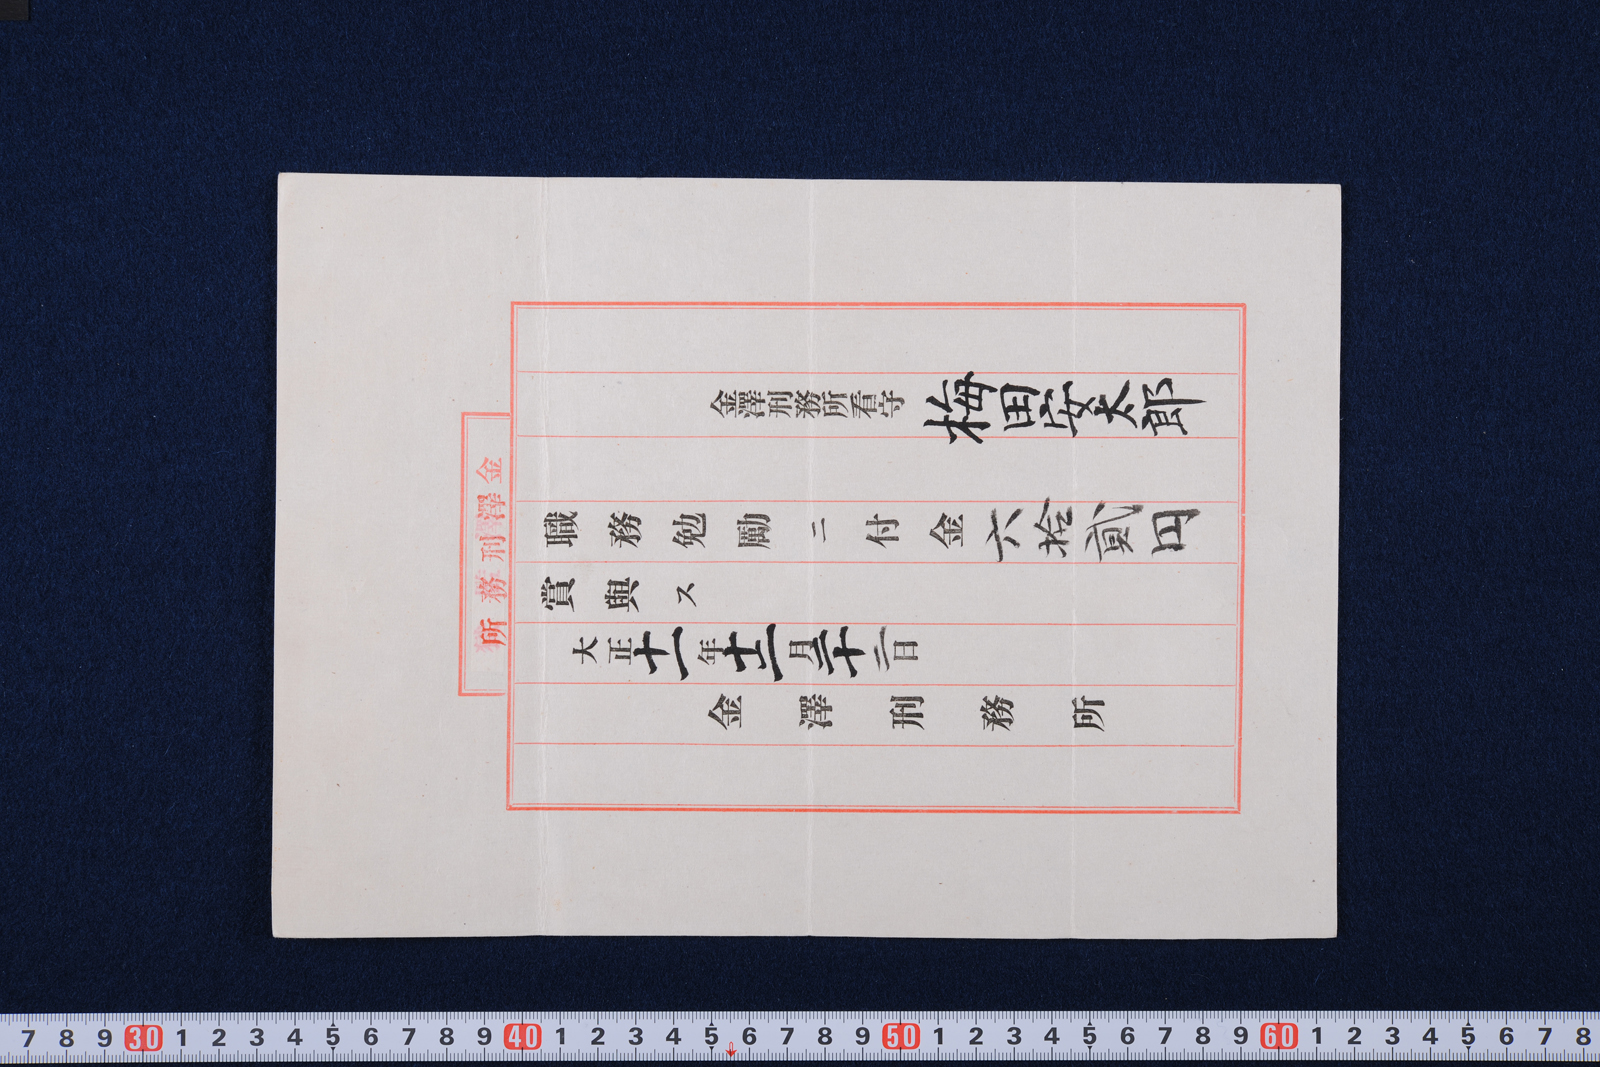 金澤刑務所看守 梅田安太郎
職務勉勵ニ付金六拾貳円
賞與ス
大正十一年十二月二十二日
金澤刑務所
金澤刑務所
7 8 9 30 1 2 3 4 5 6 7 8 9 40 1 2 3 4 5 6 7 8 9 50 1 2 3 4 5 6 7 8 9 60 1 2 3 4 5 6 7 8